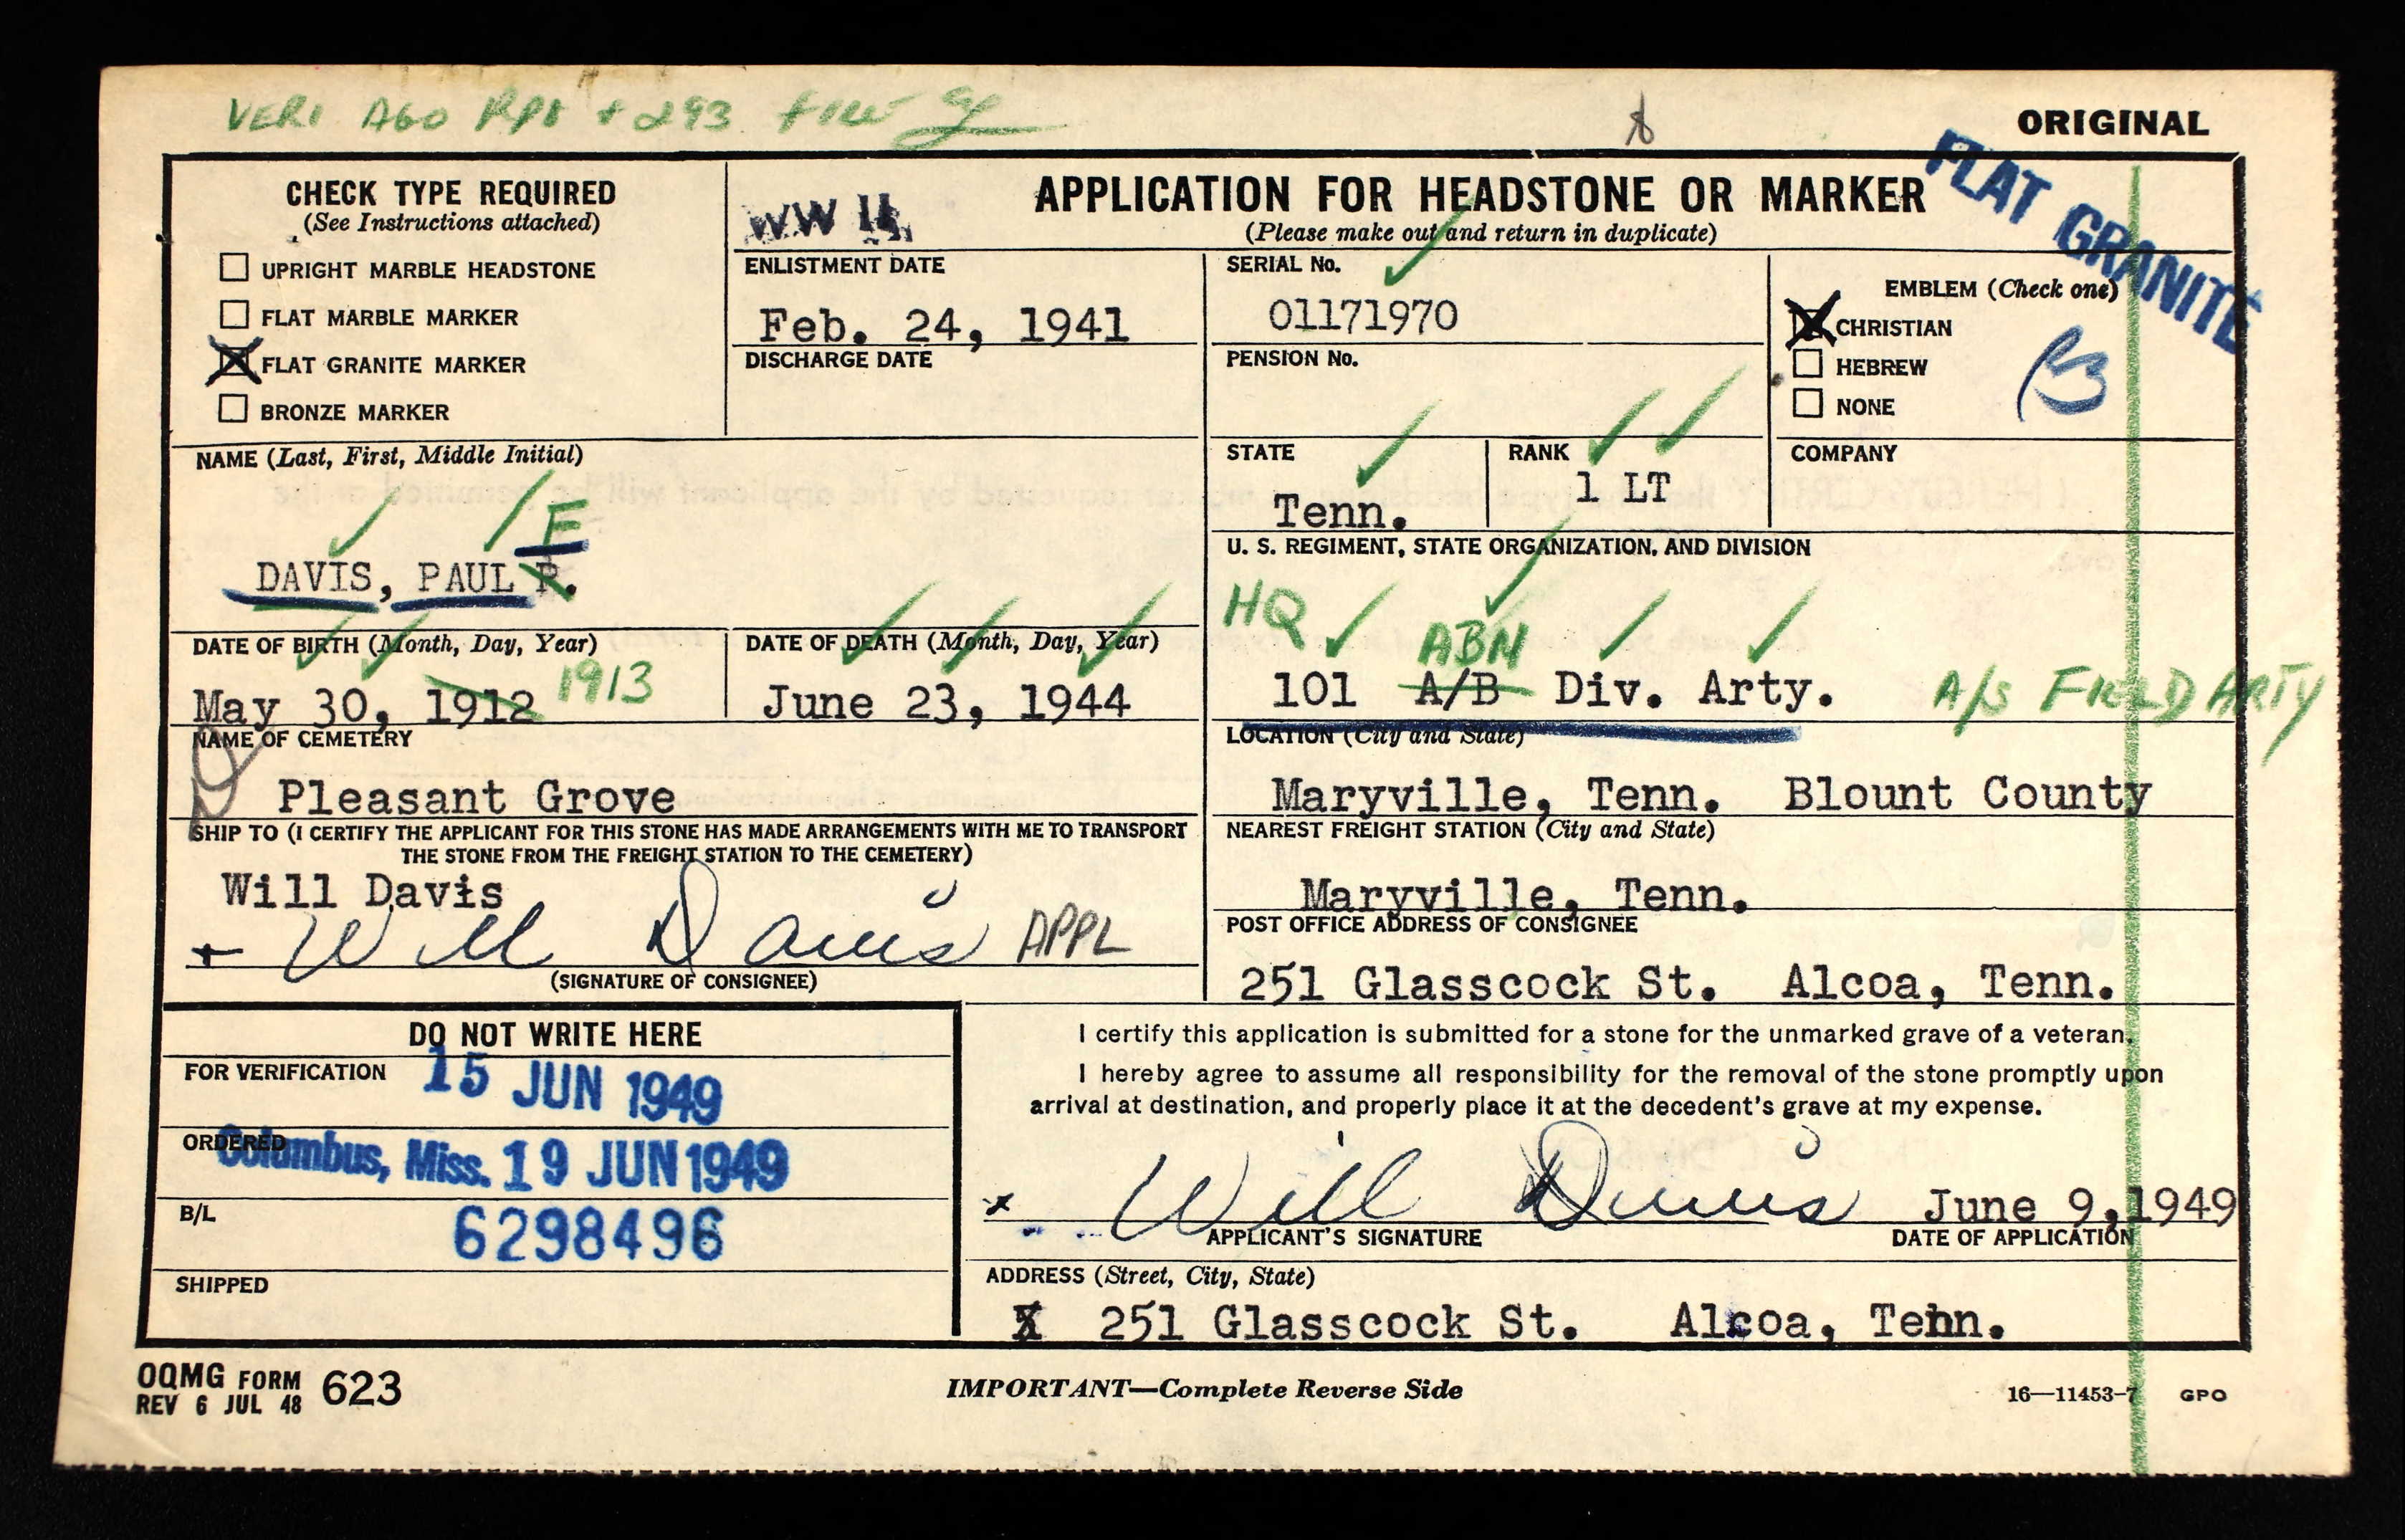 VERI AGO RPt + 293 FILE
ORIGINAL
CHECK TYPE REQUIRED
(See Instructions attached)
UPRIGHT MARBLE HEADSTONE
FLAT MARBLE MARKER
FLAT GRANITE MARKER
BRONZE MARKER
WW II
APPLICATION FOR HEADSTONE OR MARKER
(Please make out and return in duplicate)
FLAT GRANITE
ENLISTMENT DATE
Feb. 24, 1941
DISCHARGE DATE
SERIAL No.
01171970
PENSION No.
EMBLEM (Check one)
CHRISTIAN
HEBREW
NONE
NAME (Last, First, Middle Initial)
F
DAVIS, PAUL P.
STATE
Tenn.
RANK
1 LT
COMPANY
U. S. REGIMENT, STATE ORGANIZATION, AND DIVISION
HQ ABN
101 A/B Div. Arty. A/S FIELD ARTY
DATE OF BIRTH (Month, Day, Year)
May 30, 1912 1913
DATE OF DEATH (Month, Day, Year)
June 23, 1944
NAME OF CEMETERY
Pleasant Grove
LOCATION (City and State)
Maryville, Tenn. Blount County
SHIP TO (I CERTIFY THE APPLICANT FOR THIS STONE HAS MADE ARRANGEMENTS WITH ME TO TRANSPORT
THE STONE FROM THE FREIGHT STATION TO THE CEMETERY)
Will Davis
Will Davis APPL
(SIGNATURE OF CONSIGNEE)
NEAREST FREIGHT STATION (City and State)
Maryville, Tenn.
POST OFFICE ADDRESS OF CONSIGNEE
251 Glasscock St. Alcoa, Tenn.
DO NOT WRITE HERE
FOR VERIFICATION 15 JUN 1949
ORDERED Columbus, Miss. 19 JUN 1949
B/L 6298496
SHIPPED
I certify this application is submitted for a stone for the unmarked grave of a veteran.
I hereby agree to assume all responsibility for the removal of the stone promptly upon
arrival at destination, and properly place it at the decedent's grave at my expense.
x Will Davis June 9, 1949
APPLICANT'S SIGNATURE DATE OF APPLICATION
ADDRESS (Street, City, State)
251 Glasscock St. Alcoa, Tenn.
OQMG FORM 623
REV 6 JUL 48
IMPORTANT—Complete Reverse Side
16—11453-7 GPO